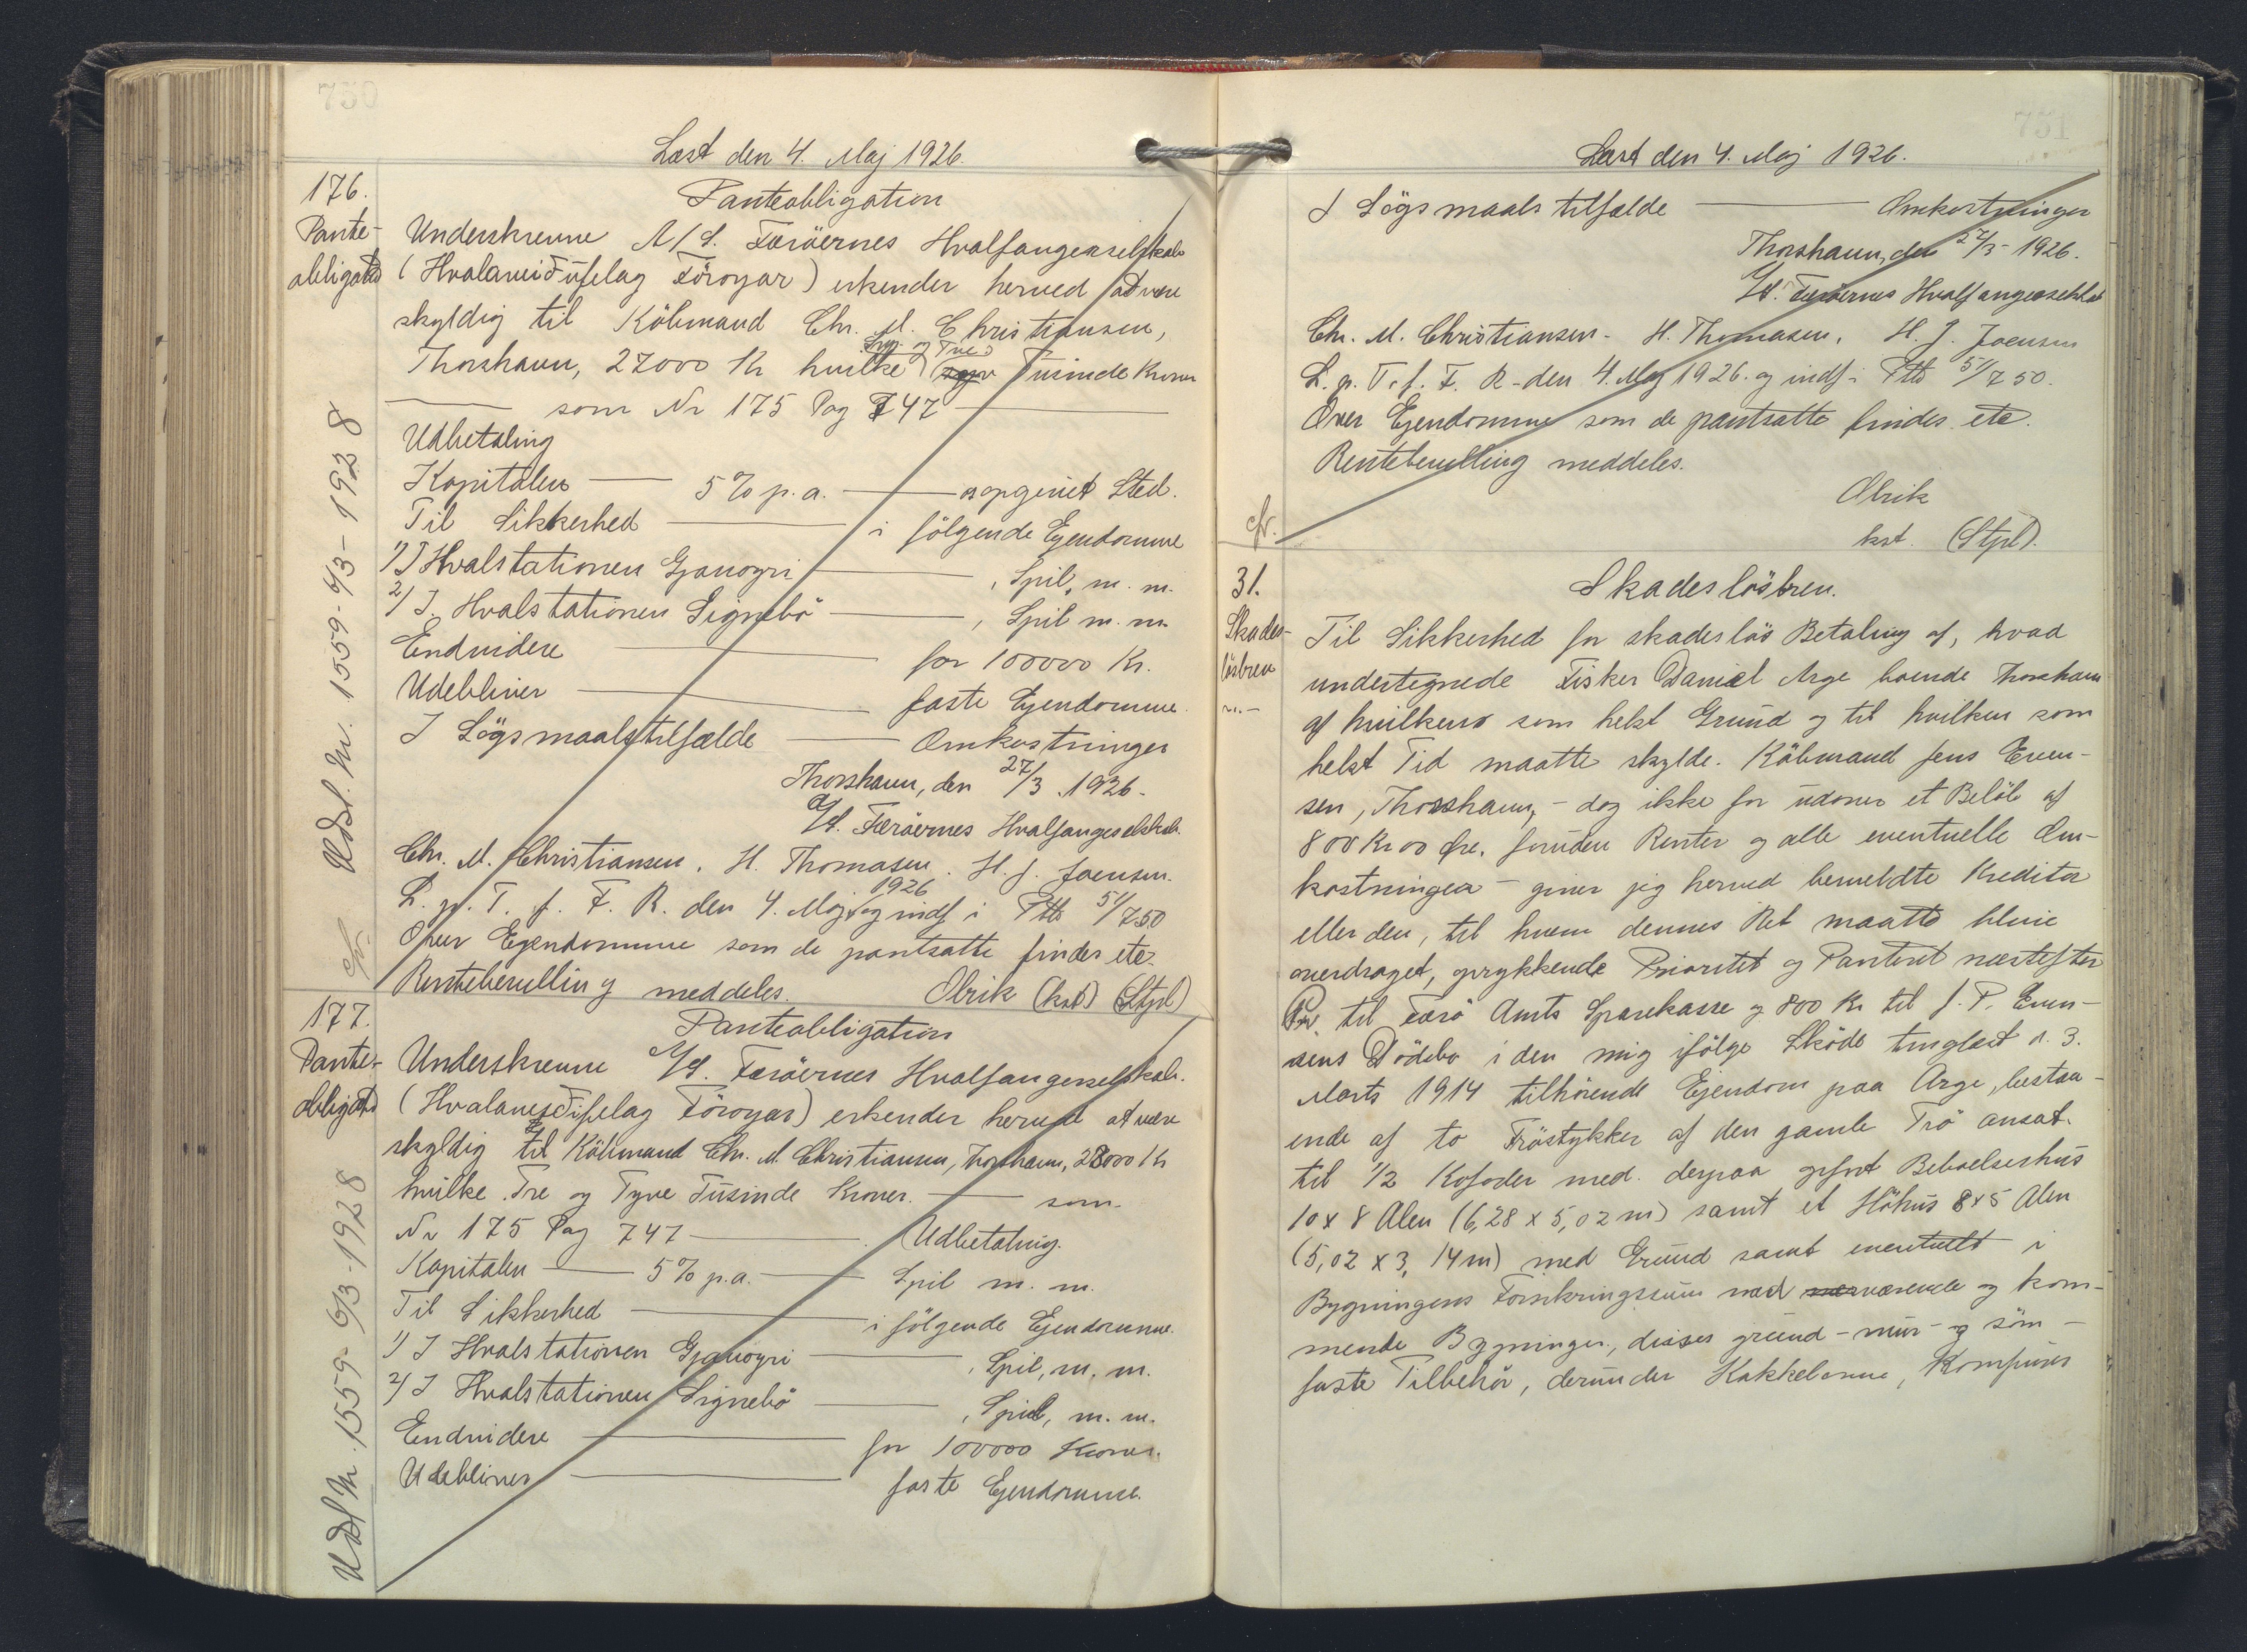 750
Læst den 4. Maj 1926.
176.
Pante-
obligation
Panteobligation
Underskrevne A/S. Færöernes Hvalfangerselskab
(Hvalaveiðufelag Föroyar) erkender herved at være
skyldig til Köbmand Chr. M. Christiansen,
Thorshavn, 27000 Kr hvilke Syv og Tyve Tusinde Kroner
som Nr 175 Pag 747
Udbetaling
Kapitalen 5% p.a. opgivet Sted.
Til Sikkerhed i fölgende Ejendomme
1) I Hvalstationen Gjanoyri , Spil, m. m.
2) I. Hvalstationen Signebö , Spil m. m.
Endvidere for 100000 Kr.
Udebliver faste Ejendomme.
I Lögsmaalstilfælde Omkostninger
Thorshavn, den 27/3 1926.
A/S. Færöernes Hvalfangerselskab.
Chr. M. Christiansen. H. Thomasen. H. J. Joensen.
L. p. T. f. F. R. den 4. Maj 1926 og indf i Ptb 51/750
Over Ejendomme som de pantsatte findes etc.
Rentebevilling meddeles. Olrik (kst) (Stpl)
Udsl. Nr. 1559-6/3-1928
cfr.
177.
Pante-
obligation
Panteobligation
Underskrevne A/S. Færöernes Hvalfangerselskab.
(Hvalaveiðifelag Föroyar) erkender herved at være
skyldig til Köbmand Chr. M. Christiansen, Thorshavn, 23000 Kr
hvilke Tre og Tyve Tusinde Kroner. som
Nr 175 Pag 747 Udbetaling.
Kapitalen 5% p.a. Spil m. m.
Til Sikkerhed i fölgende Ejendomme.
1) I Hvalstationen Gjanoyri , Spil, m. m.
2) I Hvalstationen Signebö , Spil, m. m.
Endvidere for 100000 Kroner.
Udebliver faste Ejendomme.
Udsl Nr. 1559-6/3-1928
751
Læst den 4. Maj 1926.
I Lögsmaalstilfælde Omkostninger
Thorshavn, den 27/3 1926.
A/S. Færöernes Hvalfangerselskab
Chr. M. Christiansen. H. Thomasen. H. J. Joensen
L. p. T. f. F. R. den 4. Maj 1926. og indf i Ptb 51/750.
Over Ejendomme som de pantsatte findes etc.
Rentebevilling meddeles.
Olrik
kst. (Stpl).
cfr.
31.
Skades-
lösbrev
Skadeslösbrev.
Til Sikkerhed for skadeslös Betaling af, hvad
undertegnede Fisker Daniel Arge boende Thorshavn
af hvilkens som helst Grund og til hvilken som
helst Tid maatte skylde Köbmand Jens Even-
sen, Thorshavn, - dog ikke for udover et Belöb af
800 Kr 00 Öre, foruden Renter og alle eventuelle Om-
kostninger - giver jeg herved bemeldte Kreditor
eller den, til hvem dennes Ret maatte blive
overdraget, oprykkende Prioritet og Panteret næstefter
til Færö Amts Sparekasse og 800 Kr til J. P. Even-
sens Dödsbo i den mig ifölge Sköde tinglæst d. 3.
Marts 1914 tilhörende Ejendom paa Arge, bestaa-
ende af to Tröstykker af den gamle Trö ansat
til 1/2 Kofoder med derpaa opfört Beboelseshus
10 x 8 Alen (6,28 x 5,02 m) samt et Höhus 8x5 Alen
(5,02 x 3,14 m) med Grund samt eventuelt i
Bygningens Forsikringssum med nærværende og kom-
mende Bygninger, disses grund- mur- og söm-
faste Tilbehör, derunder Kakkelovne, Komfurer